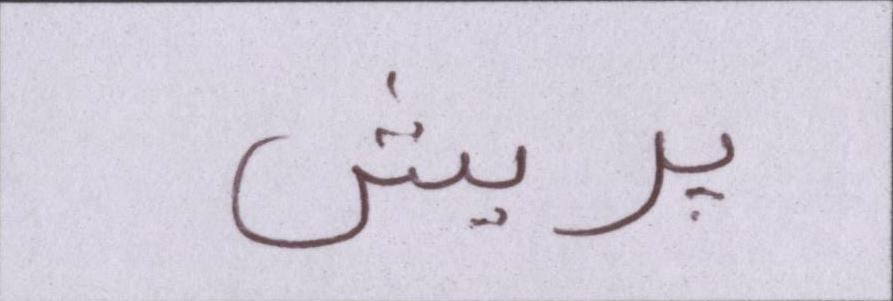 پریش